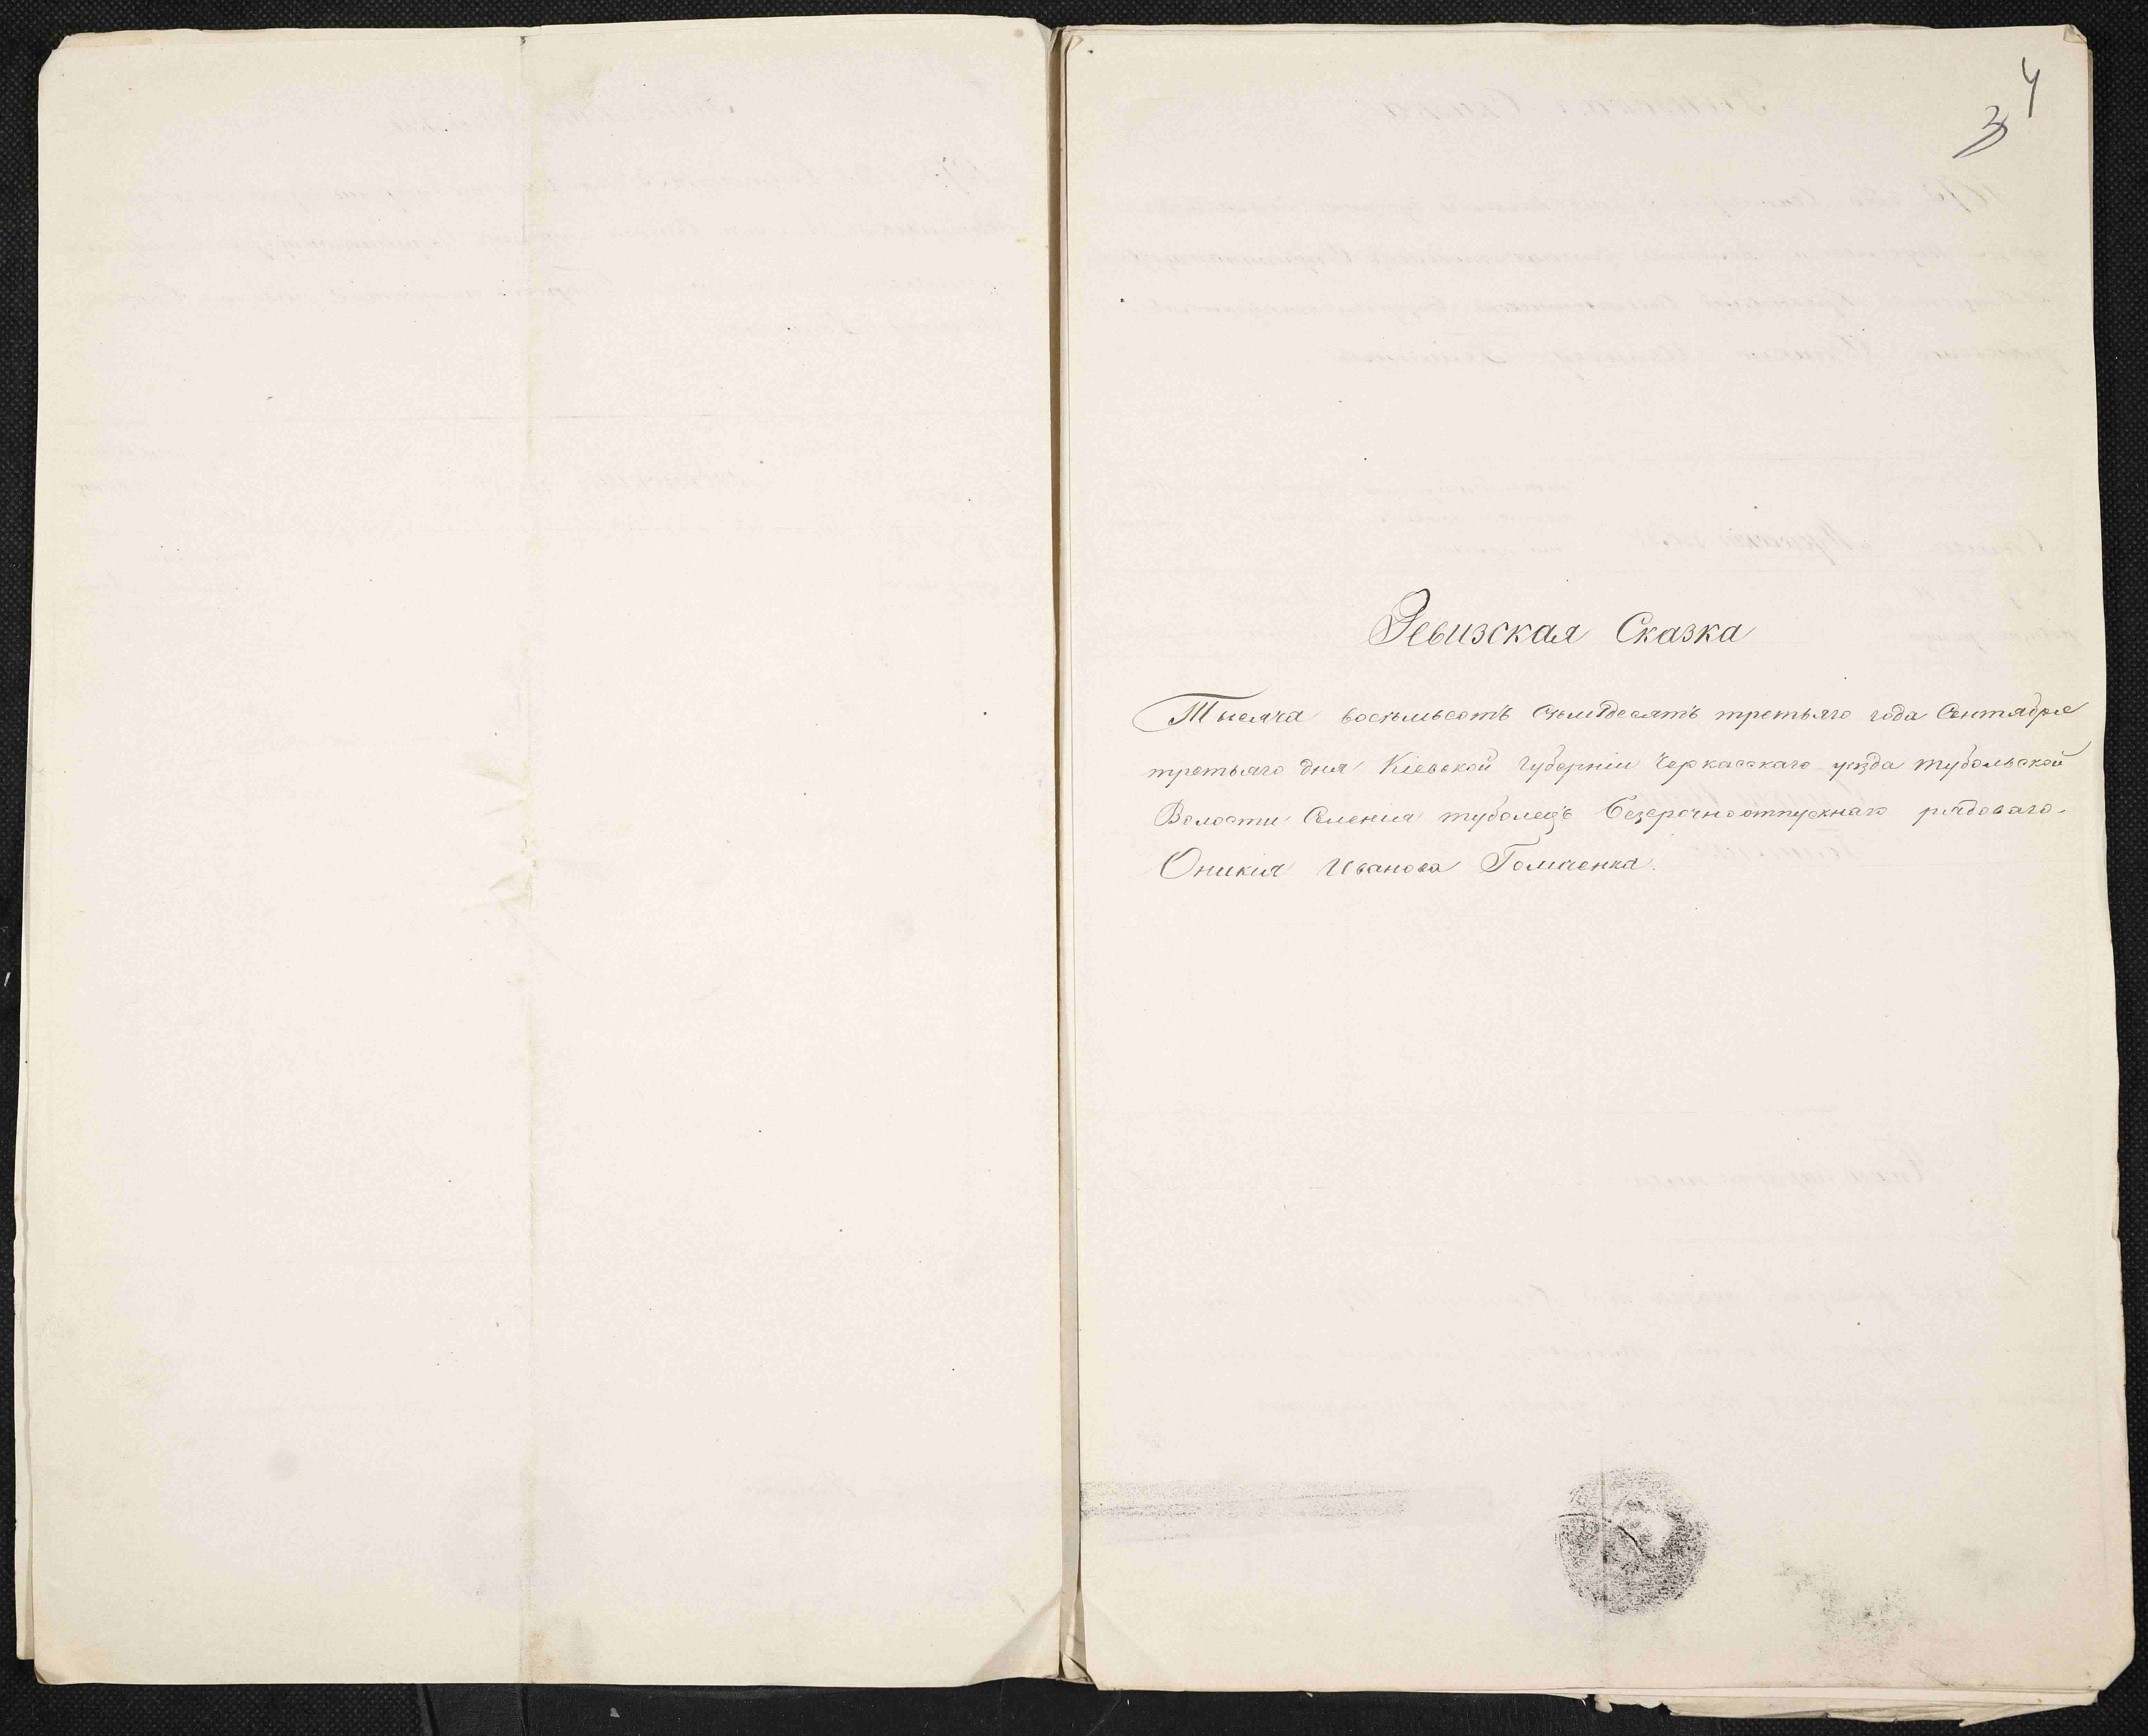 4
3
Ревизская Сказка
Тысяча восемьсотъ семьдесятъ третьяго года Сентября
третьяго дня Кіевской Губерніи Черкасскаго уезда тубольской
Волости Селенія туболецъ безсрочноотпускнаго рядоваго
Оникия Иванова Гомиенка.